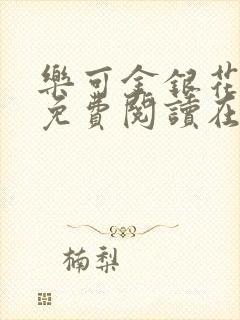 樂可金銀花
免費閱讀在
楠梨